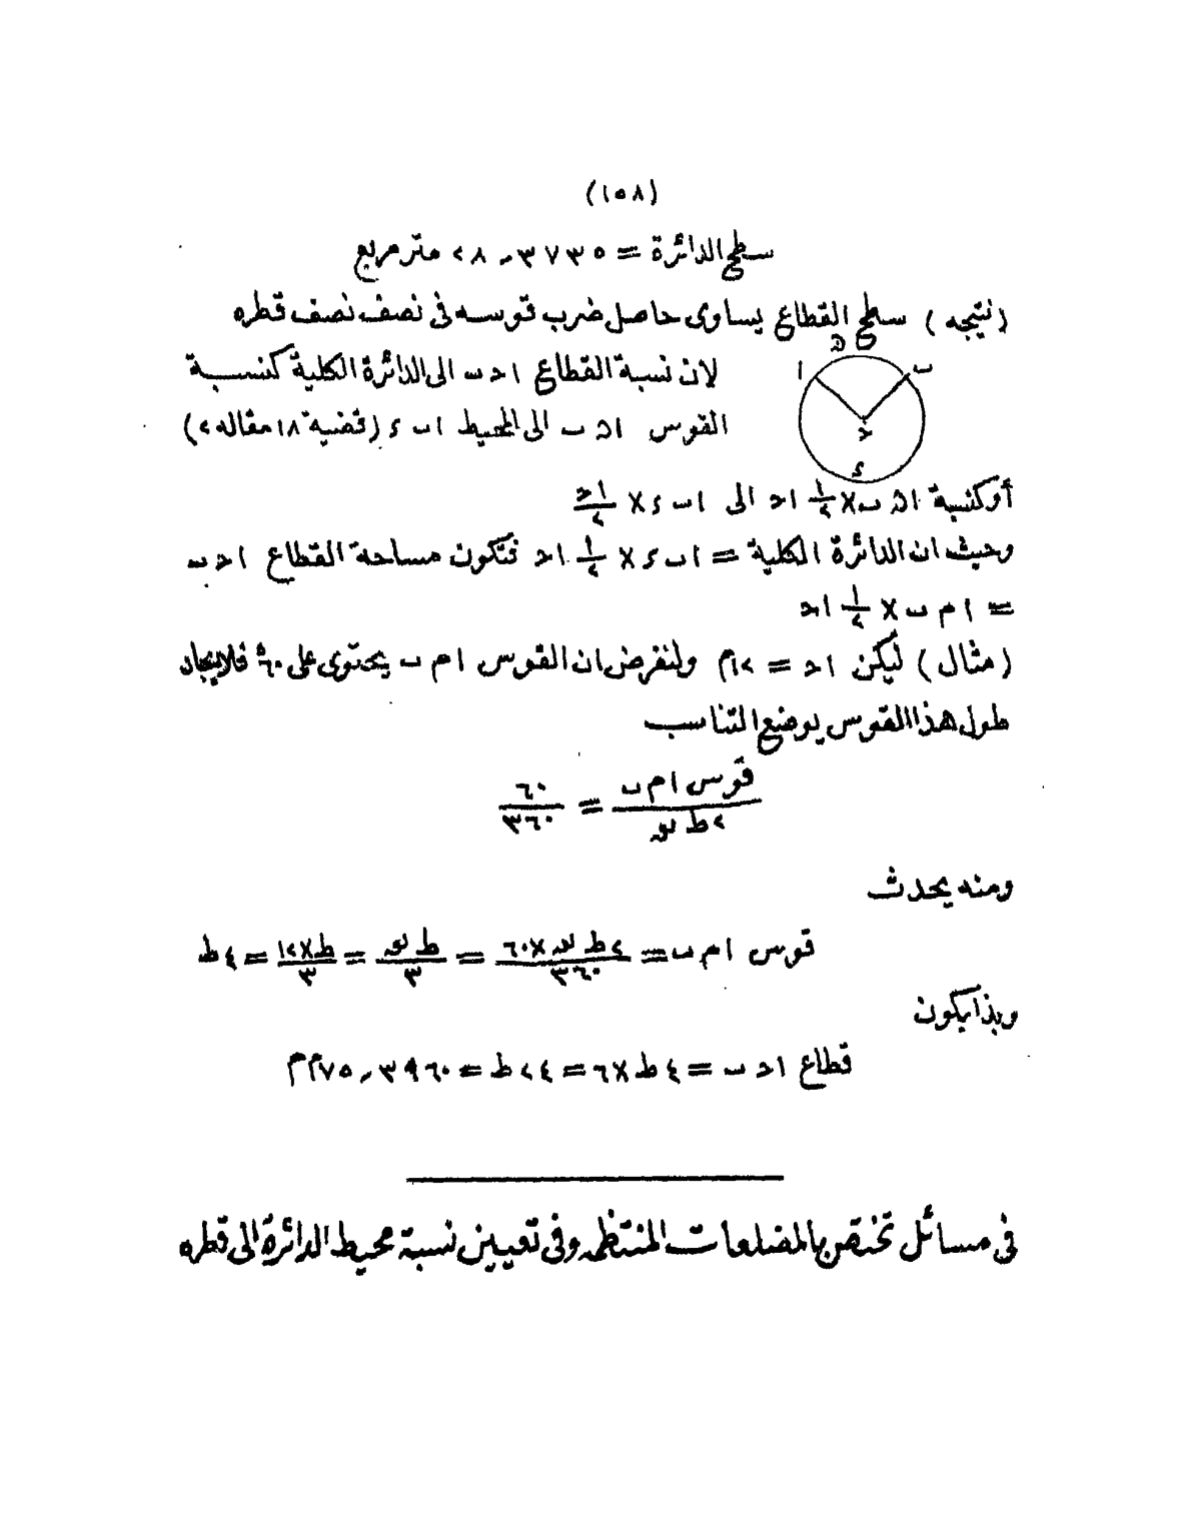 (١٥٨)
سطح الدائرة = ٢٨,٣٧٣٥ متر مربع
(نتيجه) سطح القطاع يساوى حاصل ضرب قوسه فى نصف نصف قطره
لان نسبة القطاع ا حـ ب الى الدائرة الكلية كنسبة
القوس ا هـ ب الى المحيط ا ب ء (قضية ١٨ مقاله ٢)
ا هـ ب حـ ء
أو كنسبة ا هـ ب × ١/٢ ا حـ الى ا ب ء × ا حـ/٢
وحيث ان الدائرة الكلية = ا ب ء × ١/٢ ا حـ فتكون مساحة القطاع ا حـ ب
= ا م ب × ١/٢ ا حـ
(مثال) ليكن ا حـ = ١٢م ولنفرض ان القوس ا م ب يحتوى على ٦٠° فلايجاد
طول هذا القوس يوضع التناسب
قوس ا م ب/٢ ط نق = ٦٠/٣٦٠
ومنه يحدث
قوس ا م ب = ٢ ط نق × ٦٠/٣٦٠ = ط نق/٣ = ط × ١٢/٣ = ٤ ط
وبذا يكون
قطاع ا حـ ب = ٤ ط × ٦ = ٢٤ ط = ٧٥,٣٩٦٠ م م
فى مسائل تختص بالمضلعات المنتظمه وفى تعيين نسبة محيط الدائرة الى قطره